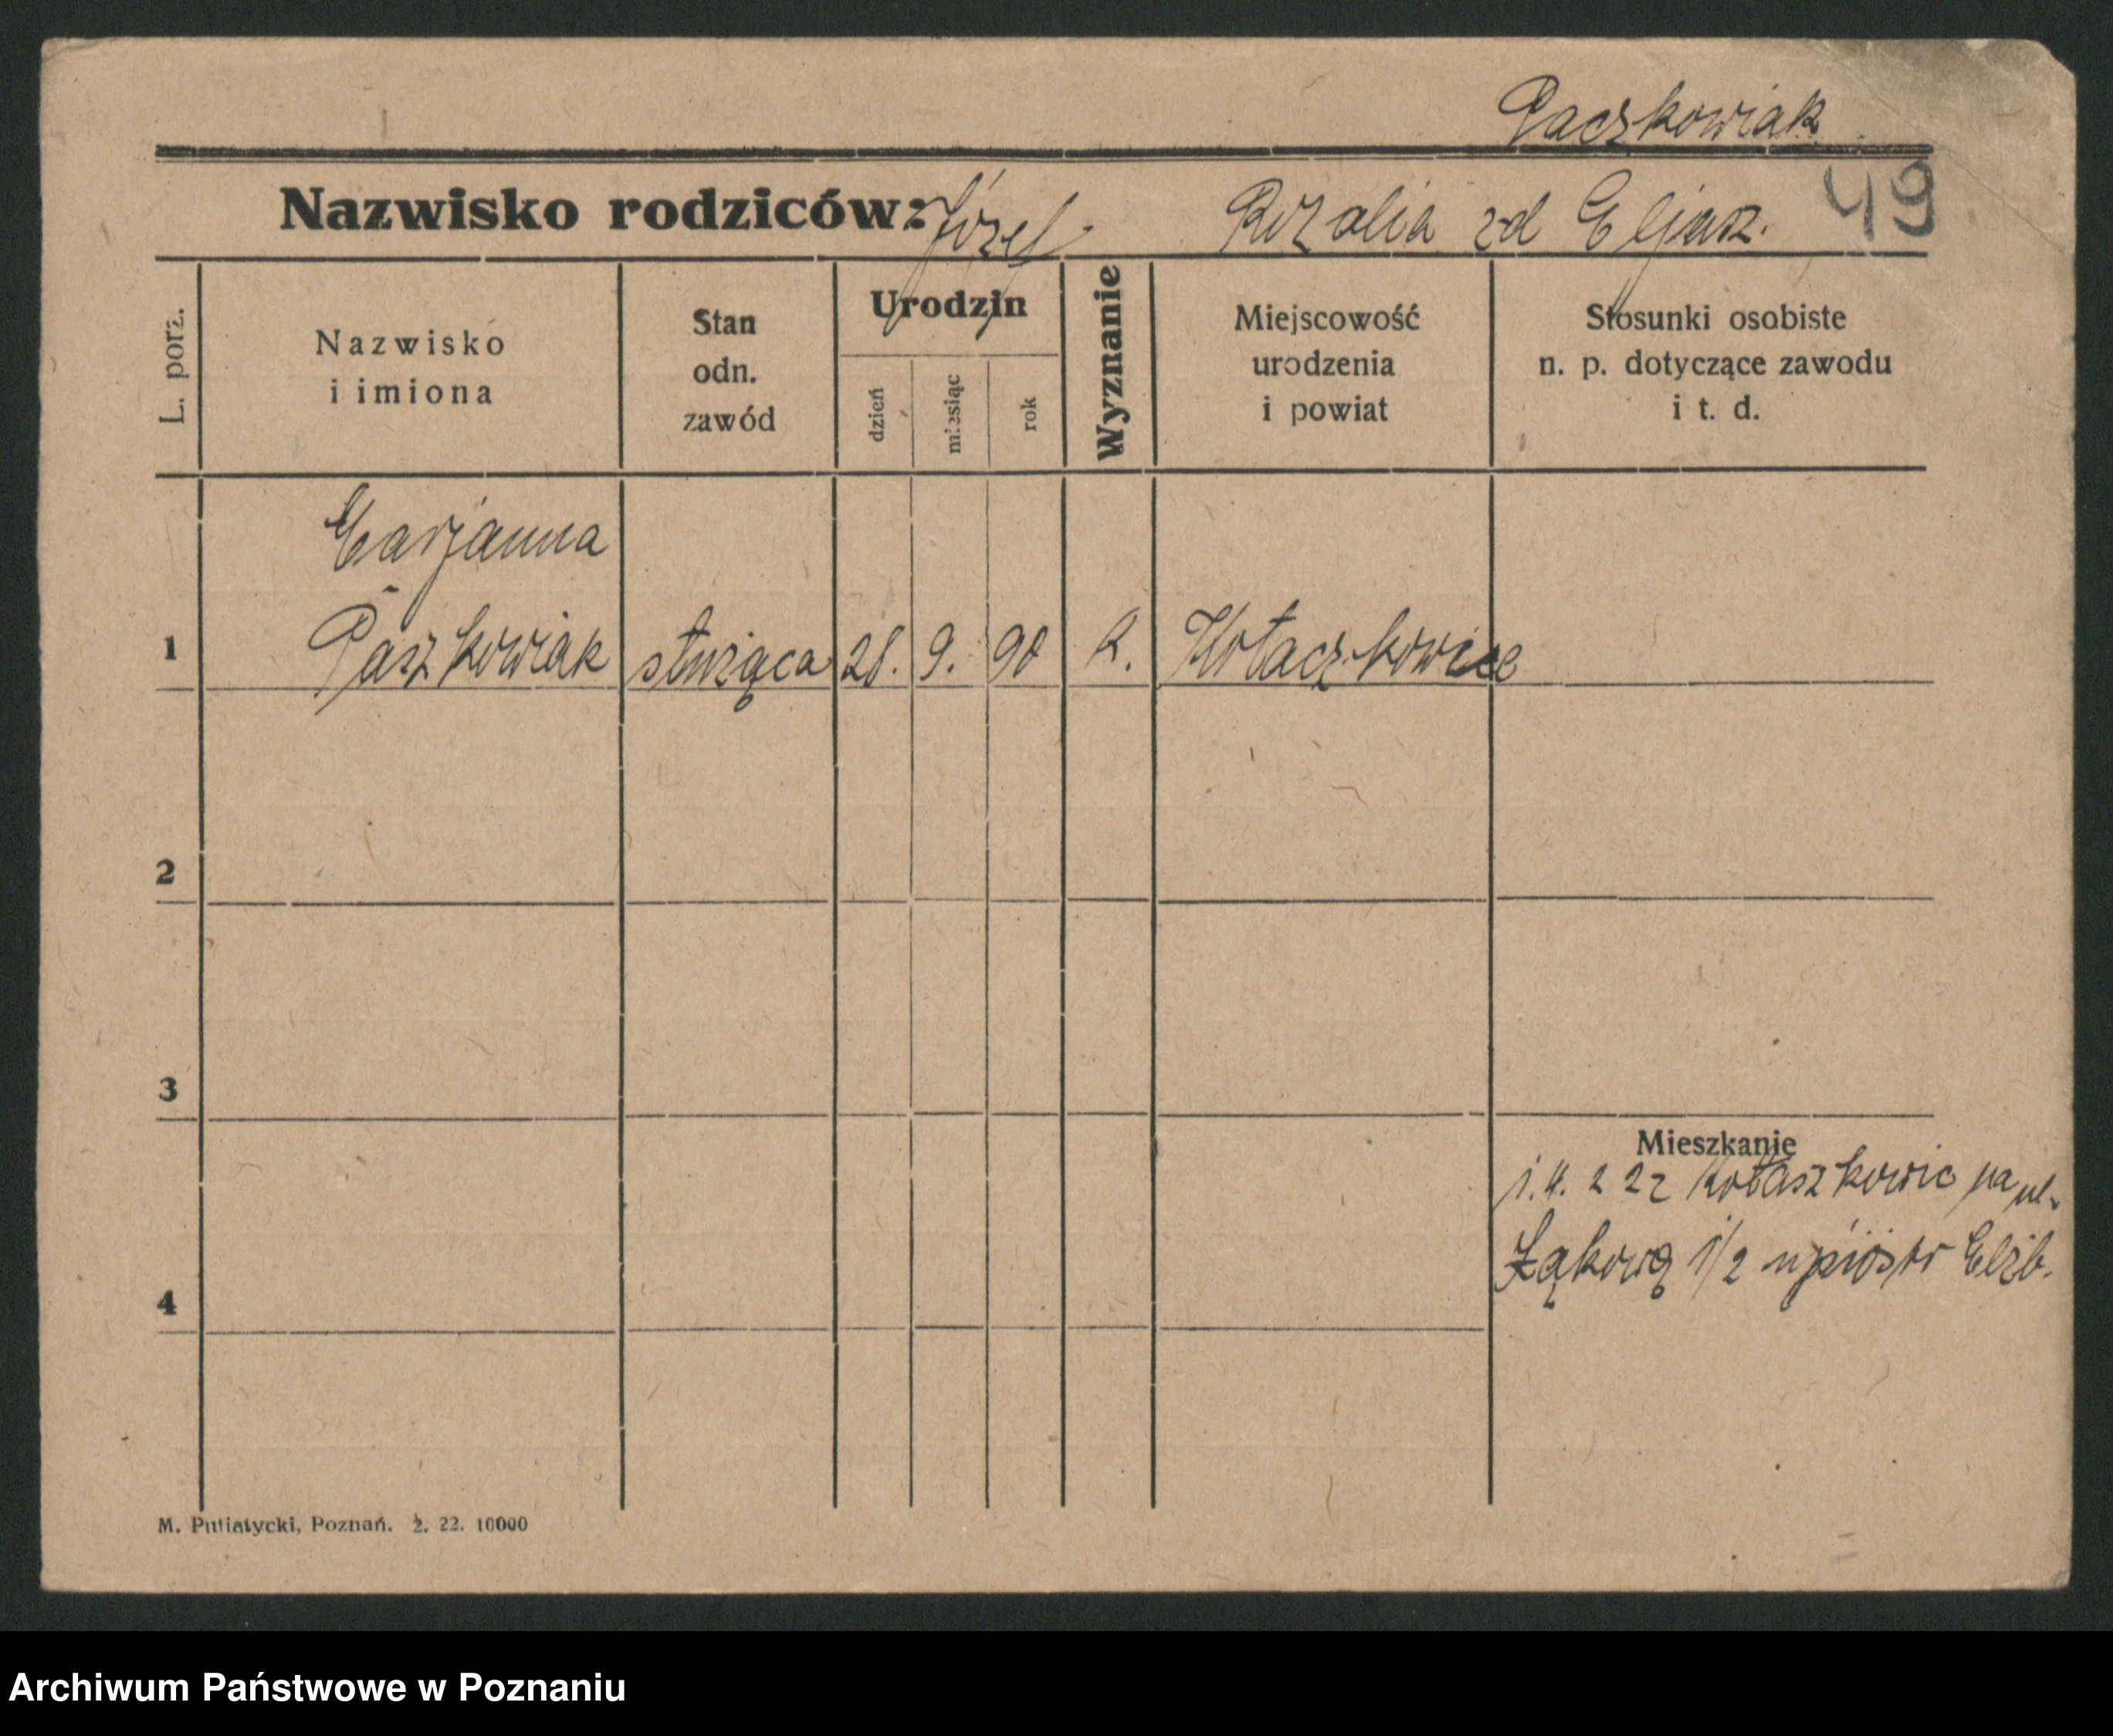 Paczkowiak
49
Nazwisko rodziców: Józef Rozalia zd Eljasz.
L. porz.
Nazwisko
i imiona
Stan
odn.
zawód
Urodzin
dzień
miesiąc
rok
Wyznanie
Miejscowość
urodzenia
i powiat
Stosunki osobiste
n. p. dotyczące zawodu
i t. d.
Marjanna
1 Paszkowiak służąca 28. 9. 90 k. Kołaczkowice
2
3
Mieszkanie
1.4.222 Kołaszkowic na ul.
Łąkową 1/2 Elżb.
4
M. Putiatycki, Poznań. 2. 22. 10000
Archiwum Państwowe w Poznaniu